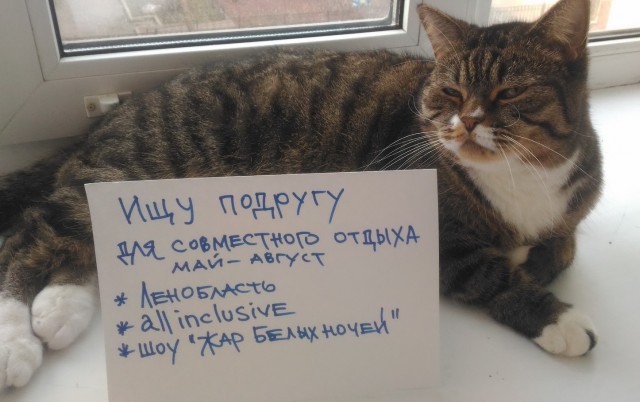 Ищу подругу
для совместного отдыха
май – август
* Ленобласть
* all inclusive
* шоу "Жар белых ночей"